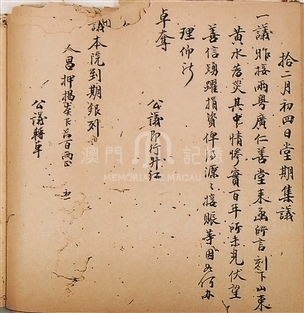 拾二月初四日堂期集議
一議昨接兩粵廣仁善堂來函所言刻下山東
黃水為災其中情慘實百年所未見伏望
善信踴躍捐資俾源源接賑等因如何办
理仰祈
卓奪
公議即行升紅
議本院到期銀列
公議轉单
澳門記憶
MEMÓRIA DE MACAU